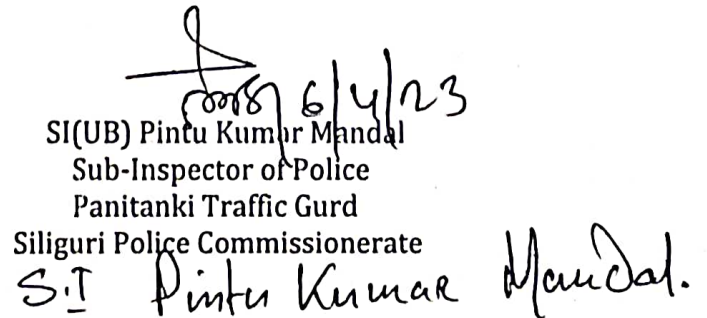 6/4/23
SI(UB) Pintu Kumar Mandal
Sub-Inspector of Police
Panitanki Traffic Gurd
Siliguri Police Commissionerate
S.I Pintu Kumar Mandal.